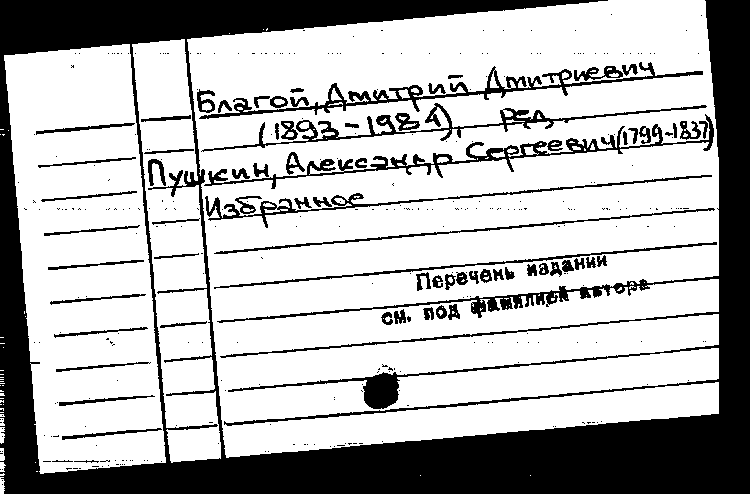 Благой, Дмитрий Дмитриевич
(1893-1984), ред.
Пушкин, Александр Сергеевич (1799-1837)
Избранное
Перечень издании
см. под фамилией автора